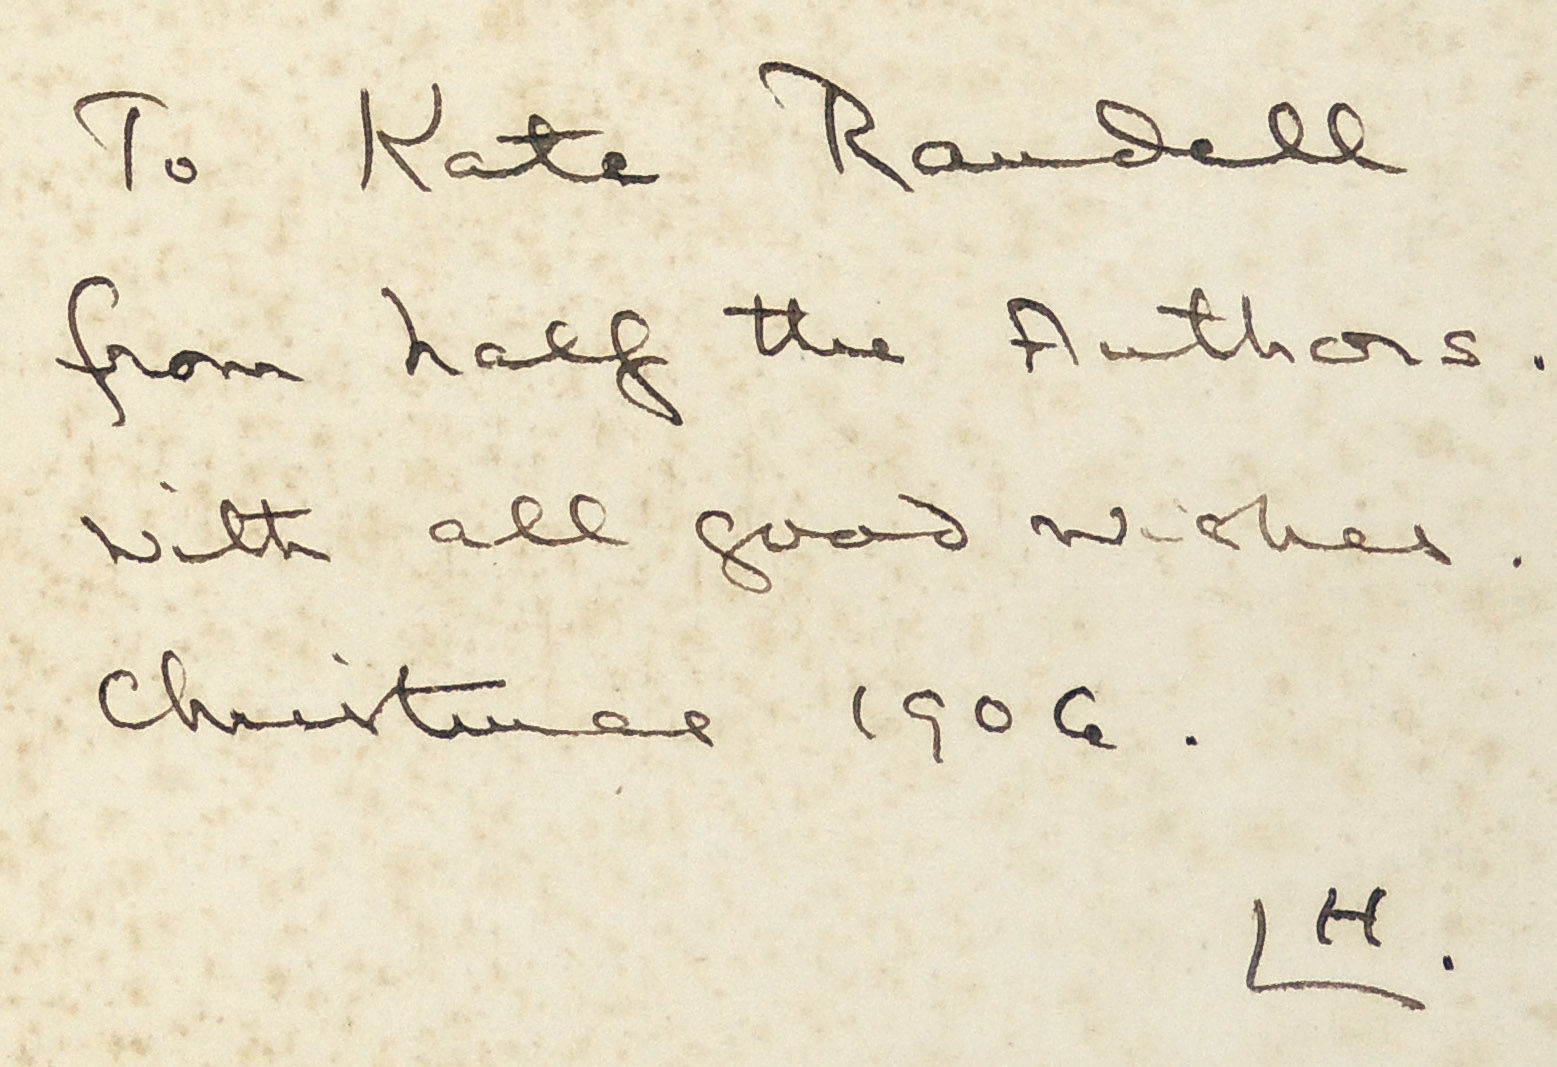 To Kate Randell
from half the Authors.
with all good wishes.
Christmas 1906.
LH.